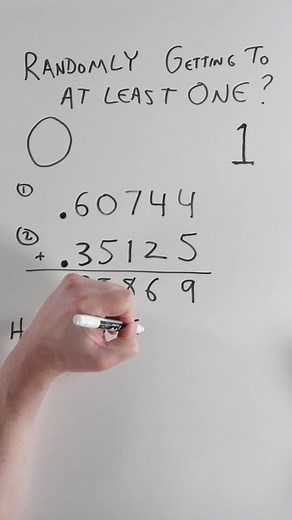 RANDOMLY GETTING TO
AT LEAST ONE?
0 1
① .60744
② + .35125
869
H